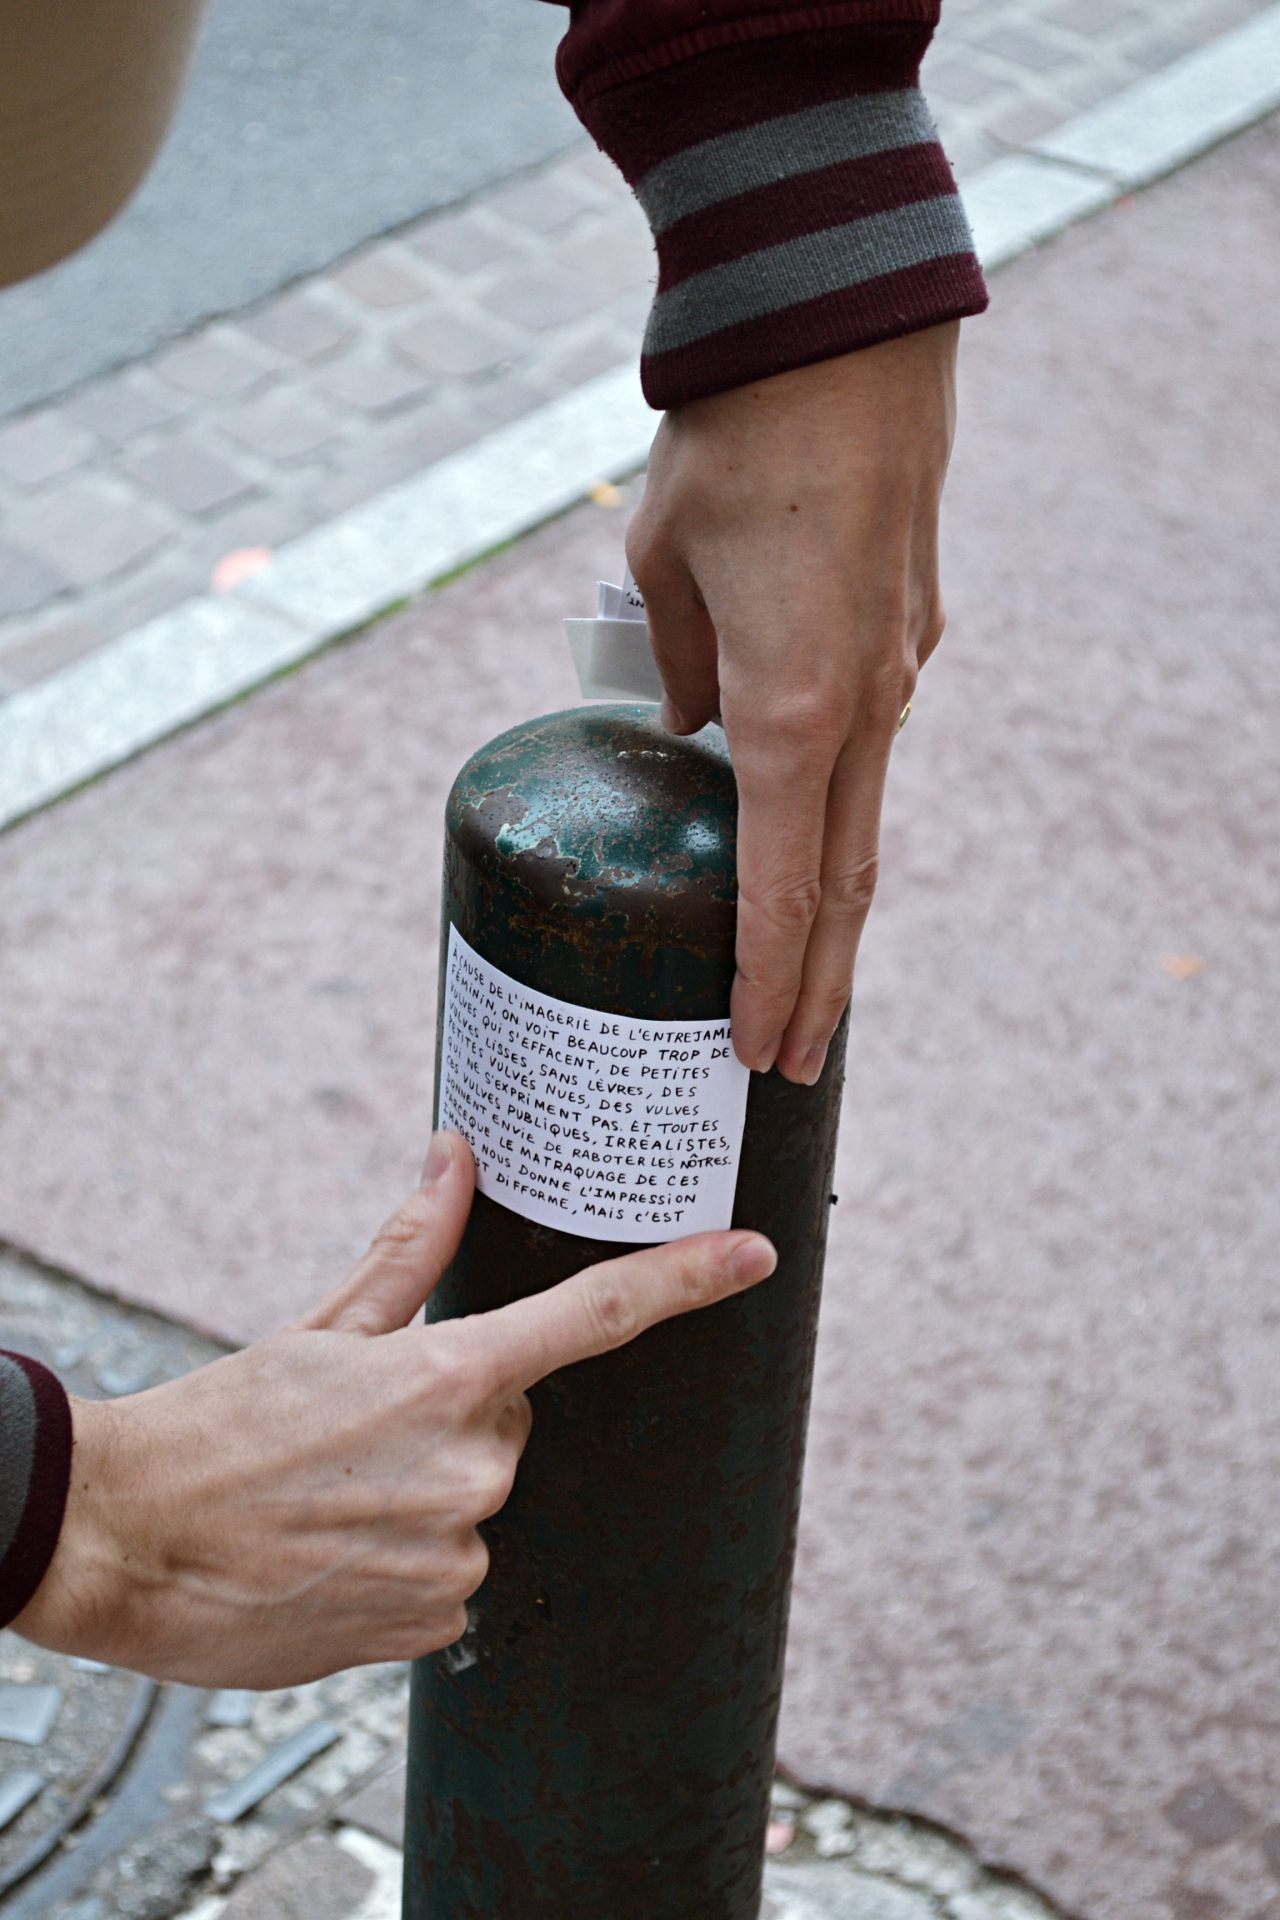 À CAUSE DE L'IMAGERIE DE L'ENTREJAMBE
FÉMININ, ON VOIT BEAUCOUP TROP DE
VULVES QUI S'EFFACENT, DE PETITES
VULVES LISSES, SANS LÈVRES, DES
PETITES VULVES NUES, DES VULVES
QUI NE S'EXPRIMENT PAS. ET TOUTES
CES VULVES PUBLIQUES, IRRÉALISTES,
DONNENT ENVIE DE RABOTER LES NÔTRES.
PARCEQUE LE MATRAQUAGE DE CES
IMAGES NOUS DONNE L'IMPRESSION
DIFFORME, MAIS C'EST